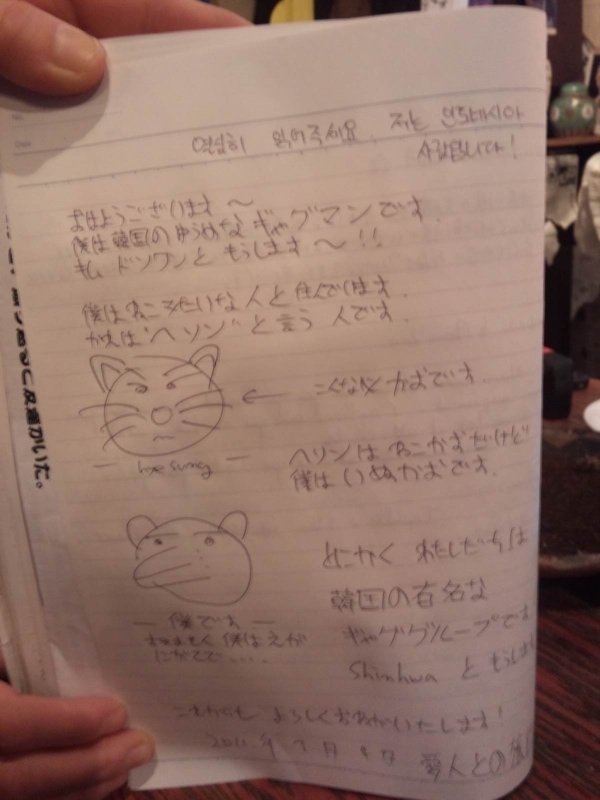 열심히 읽어주세요 저는
사람입니다!
おはようございます～
僕は韓国のゆうめなギャグマンです.
キム ドンワンと もうします～!!
僕はねこみたいな人と住んでます.
かれは"ヘソン"と言う 人です.
← こんな かおです.
— hye sung —
ヘソンは ねこかおだけど
僕は いぬかおです.
とにかく わたしだちは
— 僕です —
韓国の有名な
僕はえが
ギャググループです
にがてで....
Shinhwa と もうしま
これからも よろしくおねがいいたします!
2011.年 月 日 夢人との旅
反対がいた。